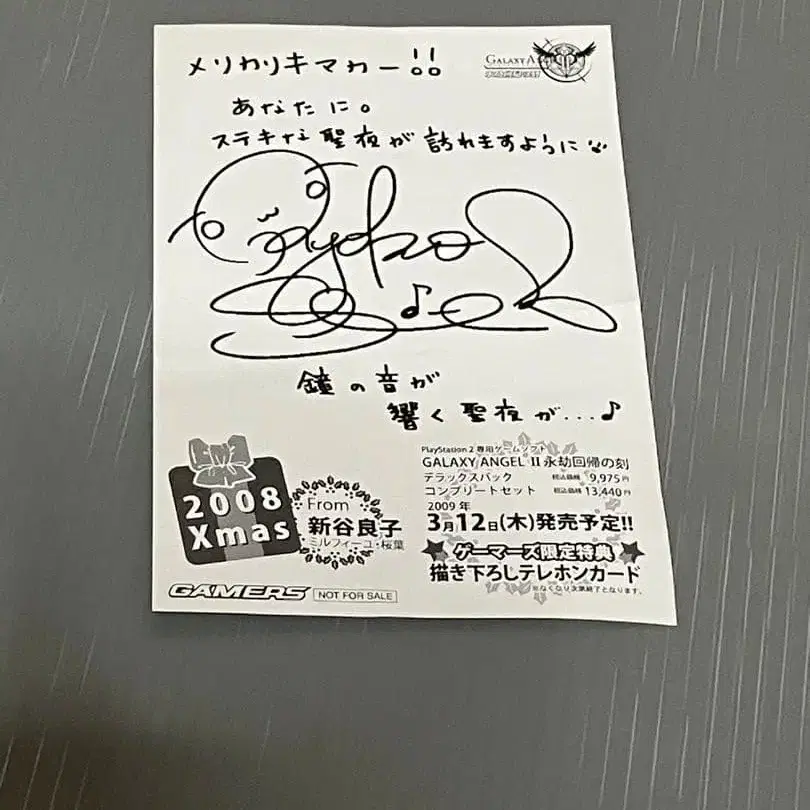 GALAXY A
メリカリキマカー!!
あなたに。
ステキな聖夜が訪れますように
Ryoko
♪
鐘の音が
響く聖夜が...♪
2008
Xmas
From
新谷良子
ミルフィーユ・桜葉
PlayStation 2 専用ゲームソフト
GALAXY ANGEL II 永劫回帰の刻
デラックスパック 税込価格 9,975円
コンプリートセット 税込価格 13,440円
2009年
3月12日(木)発売予定!!
ゲーマーズ限定特典
描き下ろしテレホンカード
※なくなり次第終了となります。
GAMERS
NOT FOR SALE